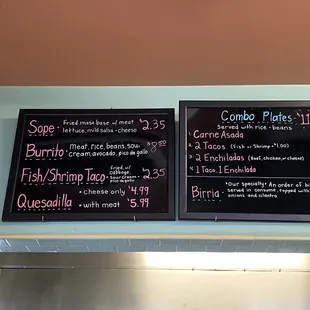 Sope · Fried masa base w/ meat $2.35
lettuce, mild salsa + cheese
Burrito · Meat, rice, beans, sour
cream, avocado, pico de gallo
Fish/Shrimp Taco · Fried, w/ $2.35
cabbage,
sour cream +
pico de gallo
Quesadilla · cheese only $4.99
· with meat $5.99
Combo Plates · $11
Served with rice + beans
1 Carne Asada
2 2 Tacos (Fish or Shrimp +$1.00)
3 2 Enchiladas (Beef, chicken, or cheese)
4 1 Taco, 1 Enchilada
Birria · *Our specialty! An order of
served in consume, topped with
onions and cilantro